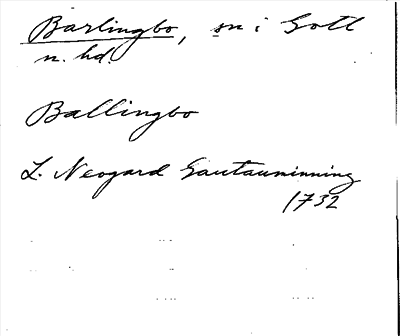 Barlingbo, sn i Gotl
n. hd.
Ballingbo
L. Neogard Gautauminning
1732